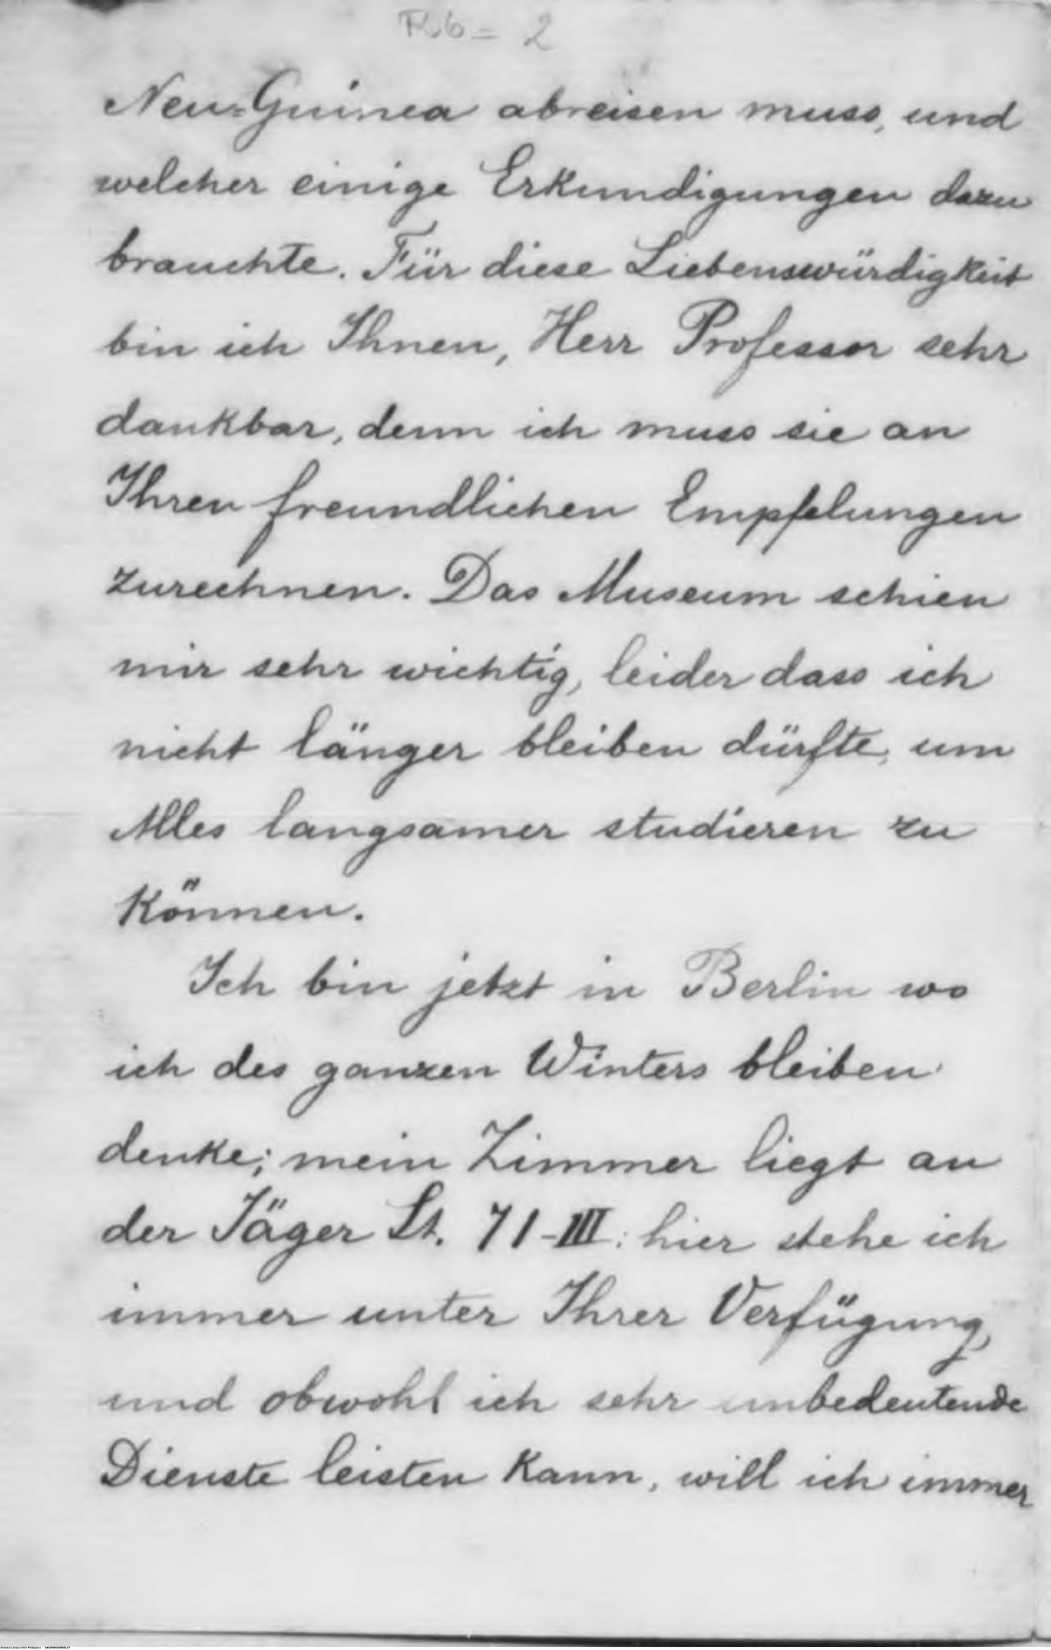 2
Neu-Guinea abreisen muss, und
welcher einige Erkundigungen dazu
brauchte. Für diese Liebenswürdigkeit
bin ich Ihnen, Herr Professor sehr
dankbar, denn ich muss sie an
Ihren freundlichen Empfelungen
zurechnen. Das Museum schien
mir sehr wichtig, leider dass ich
nicht länger bleiben dürfte, um
Alles langsamer studieren zu
können.
Ich bin jetzt in Berlin wo
ich des ganzen Winters bleiben
denke; mein Zimmer liegt an
der Jäger St. 71-III: hier stehe ich
immer unter Ihrer Verfügung,
und obwohl ich sehr unbedeutende
Dienste leisten kann, will ich immer